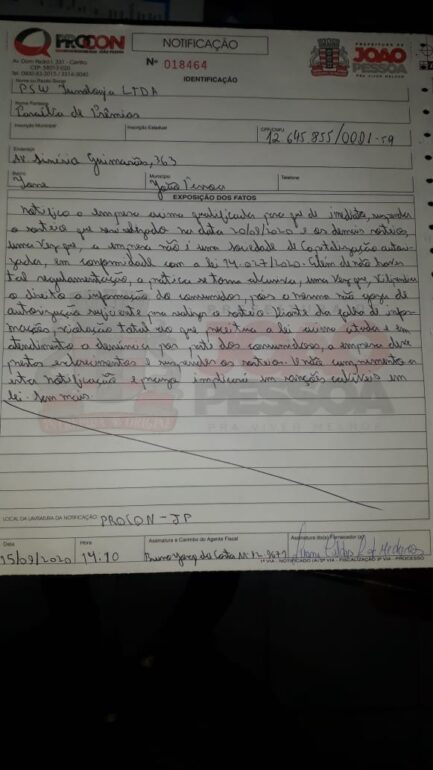 PROCON
Av. Dom Pedro I, 331 - Centro
CEP: 58013-020
Tel. 0800-83-2015 / 3214-3040
NOTIFICAÇÃO
Nº 018464
PREFEITURA DE
JOÃO
PESSOA
PRA VIVER MELHOR
IDENTIFICAÇÃO
Nome ou Razão Social
PSW LTDA
Nome Fantasia
Paraíba de Prêmios
Inscrição Municipal Inscrição Estadual CPF/CNPJ
12 645 855/0001-59
Endereço
Av Guimarães, 363
Bairro Município Telefone
João Pessoa
EXPOSIÇÃO DOS FATOS
Notifico a empresa acima qualificada para que de imediato, suspenda
o sorteio que será realizado na data 20/09/2020 e os demais sorteios,
uma vez que, a empresa não é uma sociedade de Capitalização autori-
zada, em conformidade com a lei 14.027/2020. Além de não haver
tal regulamentação, a prática se torna abusiva, uma vez que,
o direito a informação do consumidor, pois a mesma não goza de
autorização para realizar o sorteio. Diante da falta de infor-
mações, violação total ao que preceitua a lei acima citada e em
atendimento a denúncia por parte dos consumidores, a empresa deve
prestar esclarecimentos e suspender os sorteios. O não cumprimento a
esta notificação implicará em sanções cabíveis em
lei. Sem mais.
JOÃO
PESSOA
PRA VIVER MELHOR
LOCAL DA LAVRATURA DA NOTIFICAÇÃO PROCON - JP
Data Hora Assinatura e Carimbo do Agente Fiscal Assinatura do(s) Fornecedor(a)
15/09/2020 14.10 da Costa
1ª VIA - NOTIFICADO 2ª VIA - FISCALIZAÇÃO 3ª VIA - PROCESSO